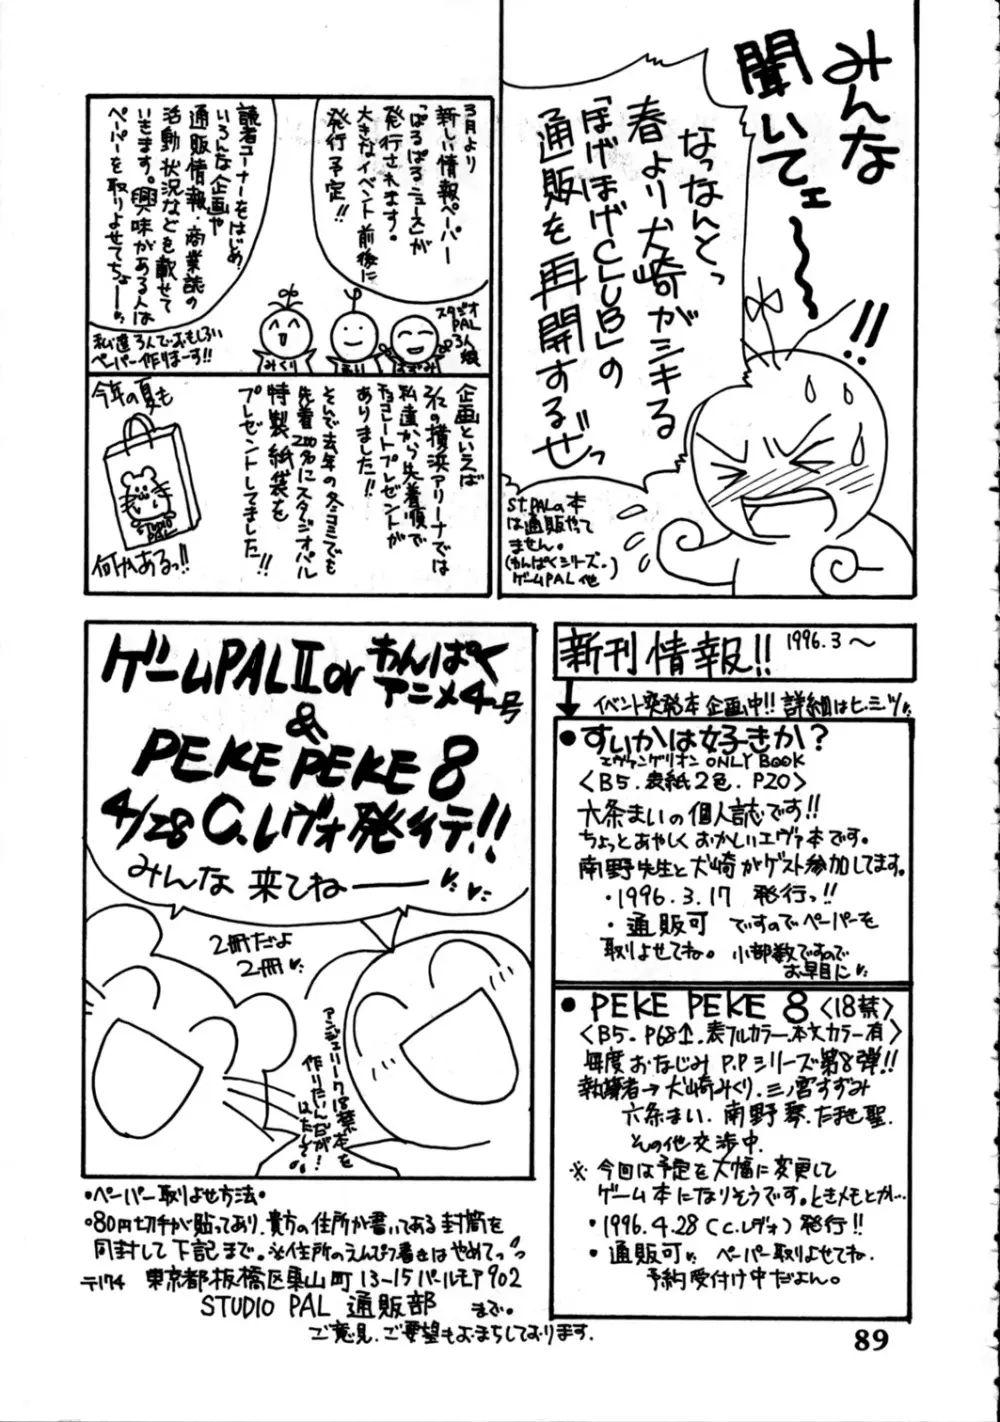 みんな
聞いてェ〜〜
!!
なっなんとっ
春より犬崎がシキる
「ほげほげCLUB」の
通販を再開するぜっ
ST.PALの本
は通販やって
ません。
(わんぱくシリーズ。)
ゲームPAL他
3月より
新しい情報ペーパー
「ぱるぱるニュース」が
発行されます。
大きなイベント前後に
発行予定!!
読者コーナーをはじめ、
いろんな企画や
通販情報・商業誌の
活動状況などを載せて
いきます。興味がある人は
ペーパーを取りよせてちょーっ
スタジオ
PAL
3人娘
みくり
まり
はずみ
私達3人で…おもしろい
ペーパー作りまーす!!
企画といえば
3/2の横浜アリーナでは
私達から先着順で
チョコレートプレゼントが
ありました!!
そんで去年の冬コミでも
先着200名にスタジオパル
特製紙袋を
プレゼントしてました!!
今年の夏も
STUDIO
PAL
何かあるっ!!
ゲームPALII or わんぱく
アニメ4号
&
PEKE PEKE 8
4/28 C.レヴォ発行予定!!
みんな来てねーー
2冊だよ
2冊
アンジェリーク18禁本を
作りたいんだが!
はたして。
新刊情報!! 1996.3〜
イベント突発本企画中!! 詳細はヒ・ミ・ツ
●すいかは好きか?
エヴァンゲリオン ONLY BOOK
<B5.表紙2色.P20>
六条まいの個人誌です!!
ちょっとあやしくおかしいエヴァ本です。
南野先生と犬崎がゲスト参加してます。
・1996.3.17 発行っ!!
・通販可 ですのでペーパーを
取りよせてね。小部数ですので
お早目に
●PEKE PEKE 8 <18禁>
<B5.P68↑.表フルカラー.本文カラー有>
毎度おなじみP.Pシリーズ第8弾!!
執筆者→犬崎みくり.三ノ宮すずみ
六条まい.南野琴.たませ聖.
その他交渉中.
※今回は予定を大幅に変更して
ゲーム本になりそうです。ときメモとか…
・1996.4.28(C.レヴォ)発行!!
・通販可 ペーパー取りよせてね.
予約受付け中だよん。
・ペーパー取りよせ方法・
・80円切手が貼ってあり、貴方の住所が書いてある封筒を
同封して下記まで。※住所のえんぴつ書きはやめてっ
〒174 東京都板橋区東山町13-15パールモア902
STUDIO PAL 通販部 まで。
ご意見.ご要望もおまちしております.
89